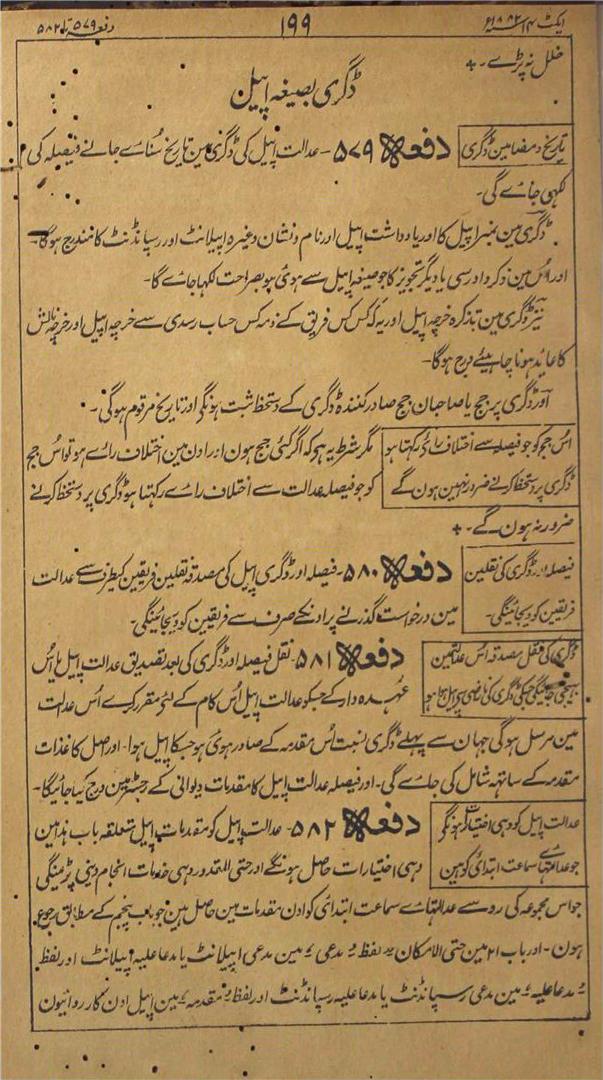 ایکٹ ۱۴ سنہ ۱۸۸۲ء
۱۹۹
دفعہ ۵۷۹ تا ۵۸۲
خلل نہ پڑے ۔ +
ڈگری بصیغہ اپیل
تاریخ و مضامین ڈگری
دفعہ ۵۷۹ ۔ عدالت اپیل کی ڈگری مین تاریخ سُنائے جانے فیصلہ کی
لکھی جائے گی۔
ڈگری مین نمبر اپیل کا اور یادداشت اپیل اور نام و نشان وغیرہ اپیلانٹ اور رسپانڈنٹ کا مندرج ہوگا۔
اور اُس مین ذکر دادرسی یا دیگر تجویز کا جو صیغہ اپیل سے ہوئی ہو بصراحت لکھا جائے گا۔
نیز ڈگری مین تذکرہ خرچہ اپیل اور یہ کہ کس کس فریق کے ذمہ کس حساب رسدی سے خرچہ اپیل اور خرچہ نالش
کا عاید ہونا چاہیئے درج ہوگا۔
اور ڈگری پر جج یا صاحبان جج صادر کنندہ ڈگری کے دستخط ثبت ہونگے اور تاریخ مرقوم ہوگی۔
اُس جج کو جو فیصلہ سے اختلاف رائے رکہتا ہو
ڈگری پر دستخط کرنے ضرور نہین ہون گے
مگر شرط یہ ہے کہ اگر کئی جج ہون اور اون مین اختلاف رائے ہو تو اُس جج
کو جو فیصلہ عدالت سے اختلاف رائے رکہتا ہو ڈگری پر دستخط کرنے
ضرور نہ ہون گے ۔ +
فیصلہ اور ڈگری کی نقلین
فریقین کو دیجائینگی۔
دفعہ ۵۸۰ ۔ فیصلہ اور ڈگری اپیل کی مصدقہ نقلین فریقین کیطرف سے عدالت
مین درخواست گذرنے پر اونکے صرف سے فریقین کو دیجائینگی۔
ڈگری کی نقل مصدقہ اُس عدالت مین
بھیجی جائیگی جسکی ڈگری کی ناراضی سے اپیل ہوا ہو
دفعہ ۵۸۱ ۔ نقل فیصلہ اور ڈگری کی بعد تصدیق عدالت اپیل یا اُس
عہدہ دار کے جسکو عدالت اپیل اُس کام کے لئے مقرر کرے اُس عدالت
مین مرسل ہوگی جہان سے پہلے ڈگری نسبت اُس مقدمہ کے صادر ہوئی ہو جسکا اپیل ہوا۔ اور اصل کاغذات
مقدمہ کے ساتھہ شامل کی جائے گی۔ اور فیصلہ عدالت اپیل کا مقدمات دیوانی کے رجسٹر مین درج کیا جائیگا۔
عدالت اپیل کو وہی اختیارات ہونگے
جو عدالتہائے سماعت ابتدائی کو ہین
دفعہ ۵۸۲ ۔ عدالت اپیل کو مقدمات اپیل متعلقہ باب ہذا مین
وہی اختیارات حاصل ہونگے اور حتی المقدور وہی خدمات انجام دینی پڑینگی
جو اس مجموعہ کی رو سے عدالتہائے سماعت ابتدائی کو اون مقدمات مین حاصل ہین جو باب پنجم کے مطابق رجوع
ہون۔ اور باب ۲۱ مین حتی الامکان لفظ مدعی مین مدعی اپیلانٹ یا مدعا علیہ اپیلانٹ اور لفظ
مدعا علیہ مین مدعی رسپانڈنٹ یا مدعا علیہ رسپانڈنٹ اور لفظ مقدمہ مین اپیل اون کارروائیون